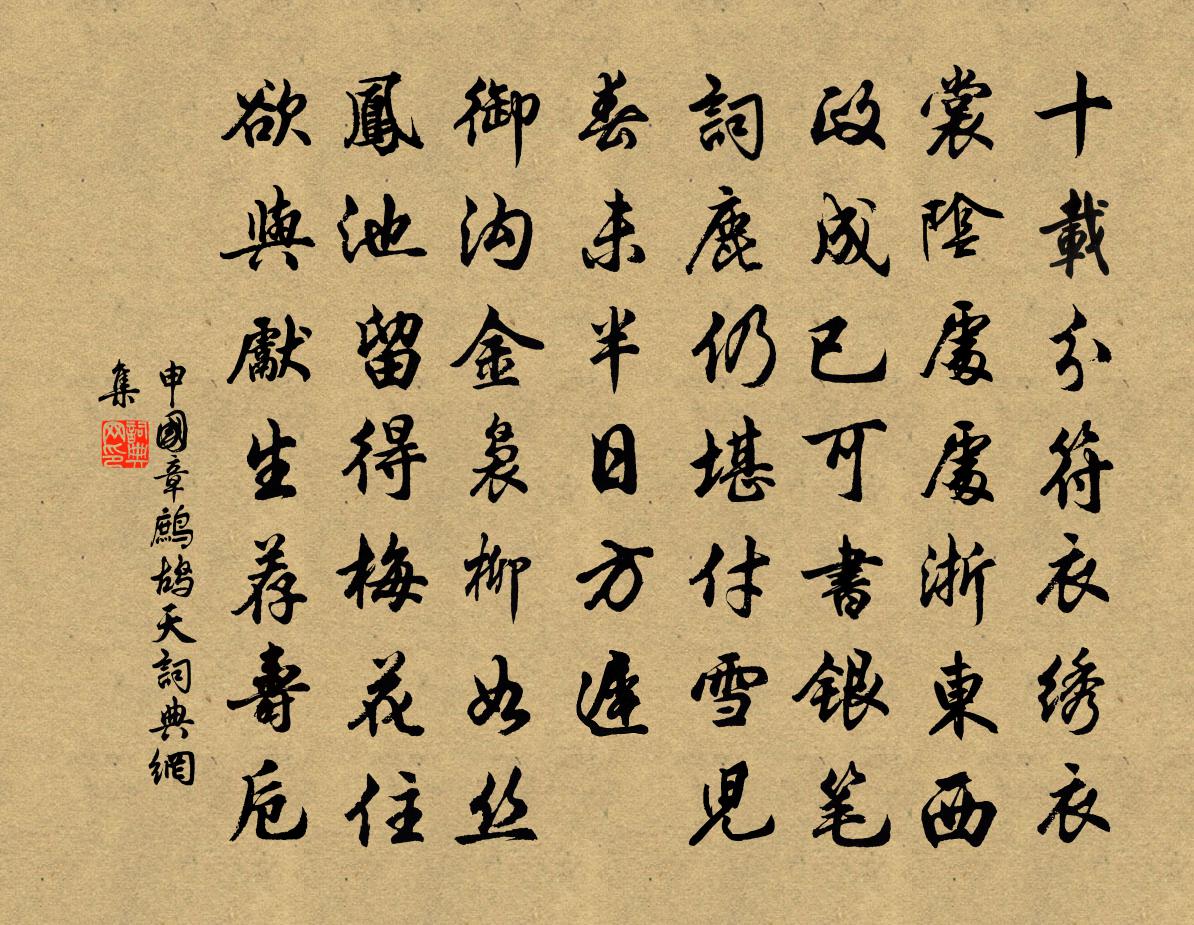 十載分符衣绣衣
裳陰處處浙東西
政成已可書銀笔
詞麗仍堪付雪児
春未半日方遲
御沟金裊柳如丝
鳳池留得梅花住
欲與獻生荐壽卮
申國章鷓鸪天詞典網
集
詞典
网印